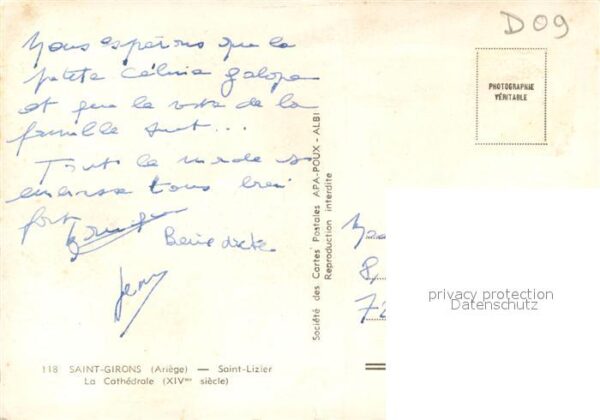 Nous espérons que la
petite Célina galope
et que le reste de la
famille suit...
Tout le monde se
embrasse tous bien
fort
Bénédicte
Jean
D09
PHOTOGRAPHIE
VÉRITABLE
Société des Cartes Postales APA-POUX - ALBI
Reproduction interdite
8,
72
privacy protection
Datenschutz
118 SAINT-GIRONS (Ariège) — Saint-Lizier
La Cathédrale (XIVme siècle)